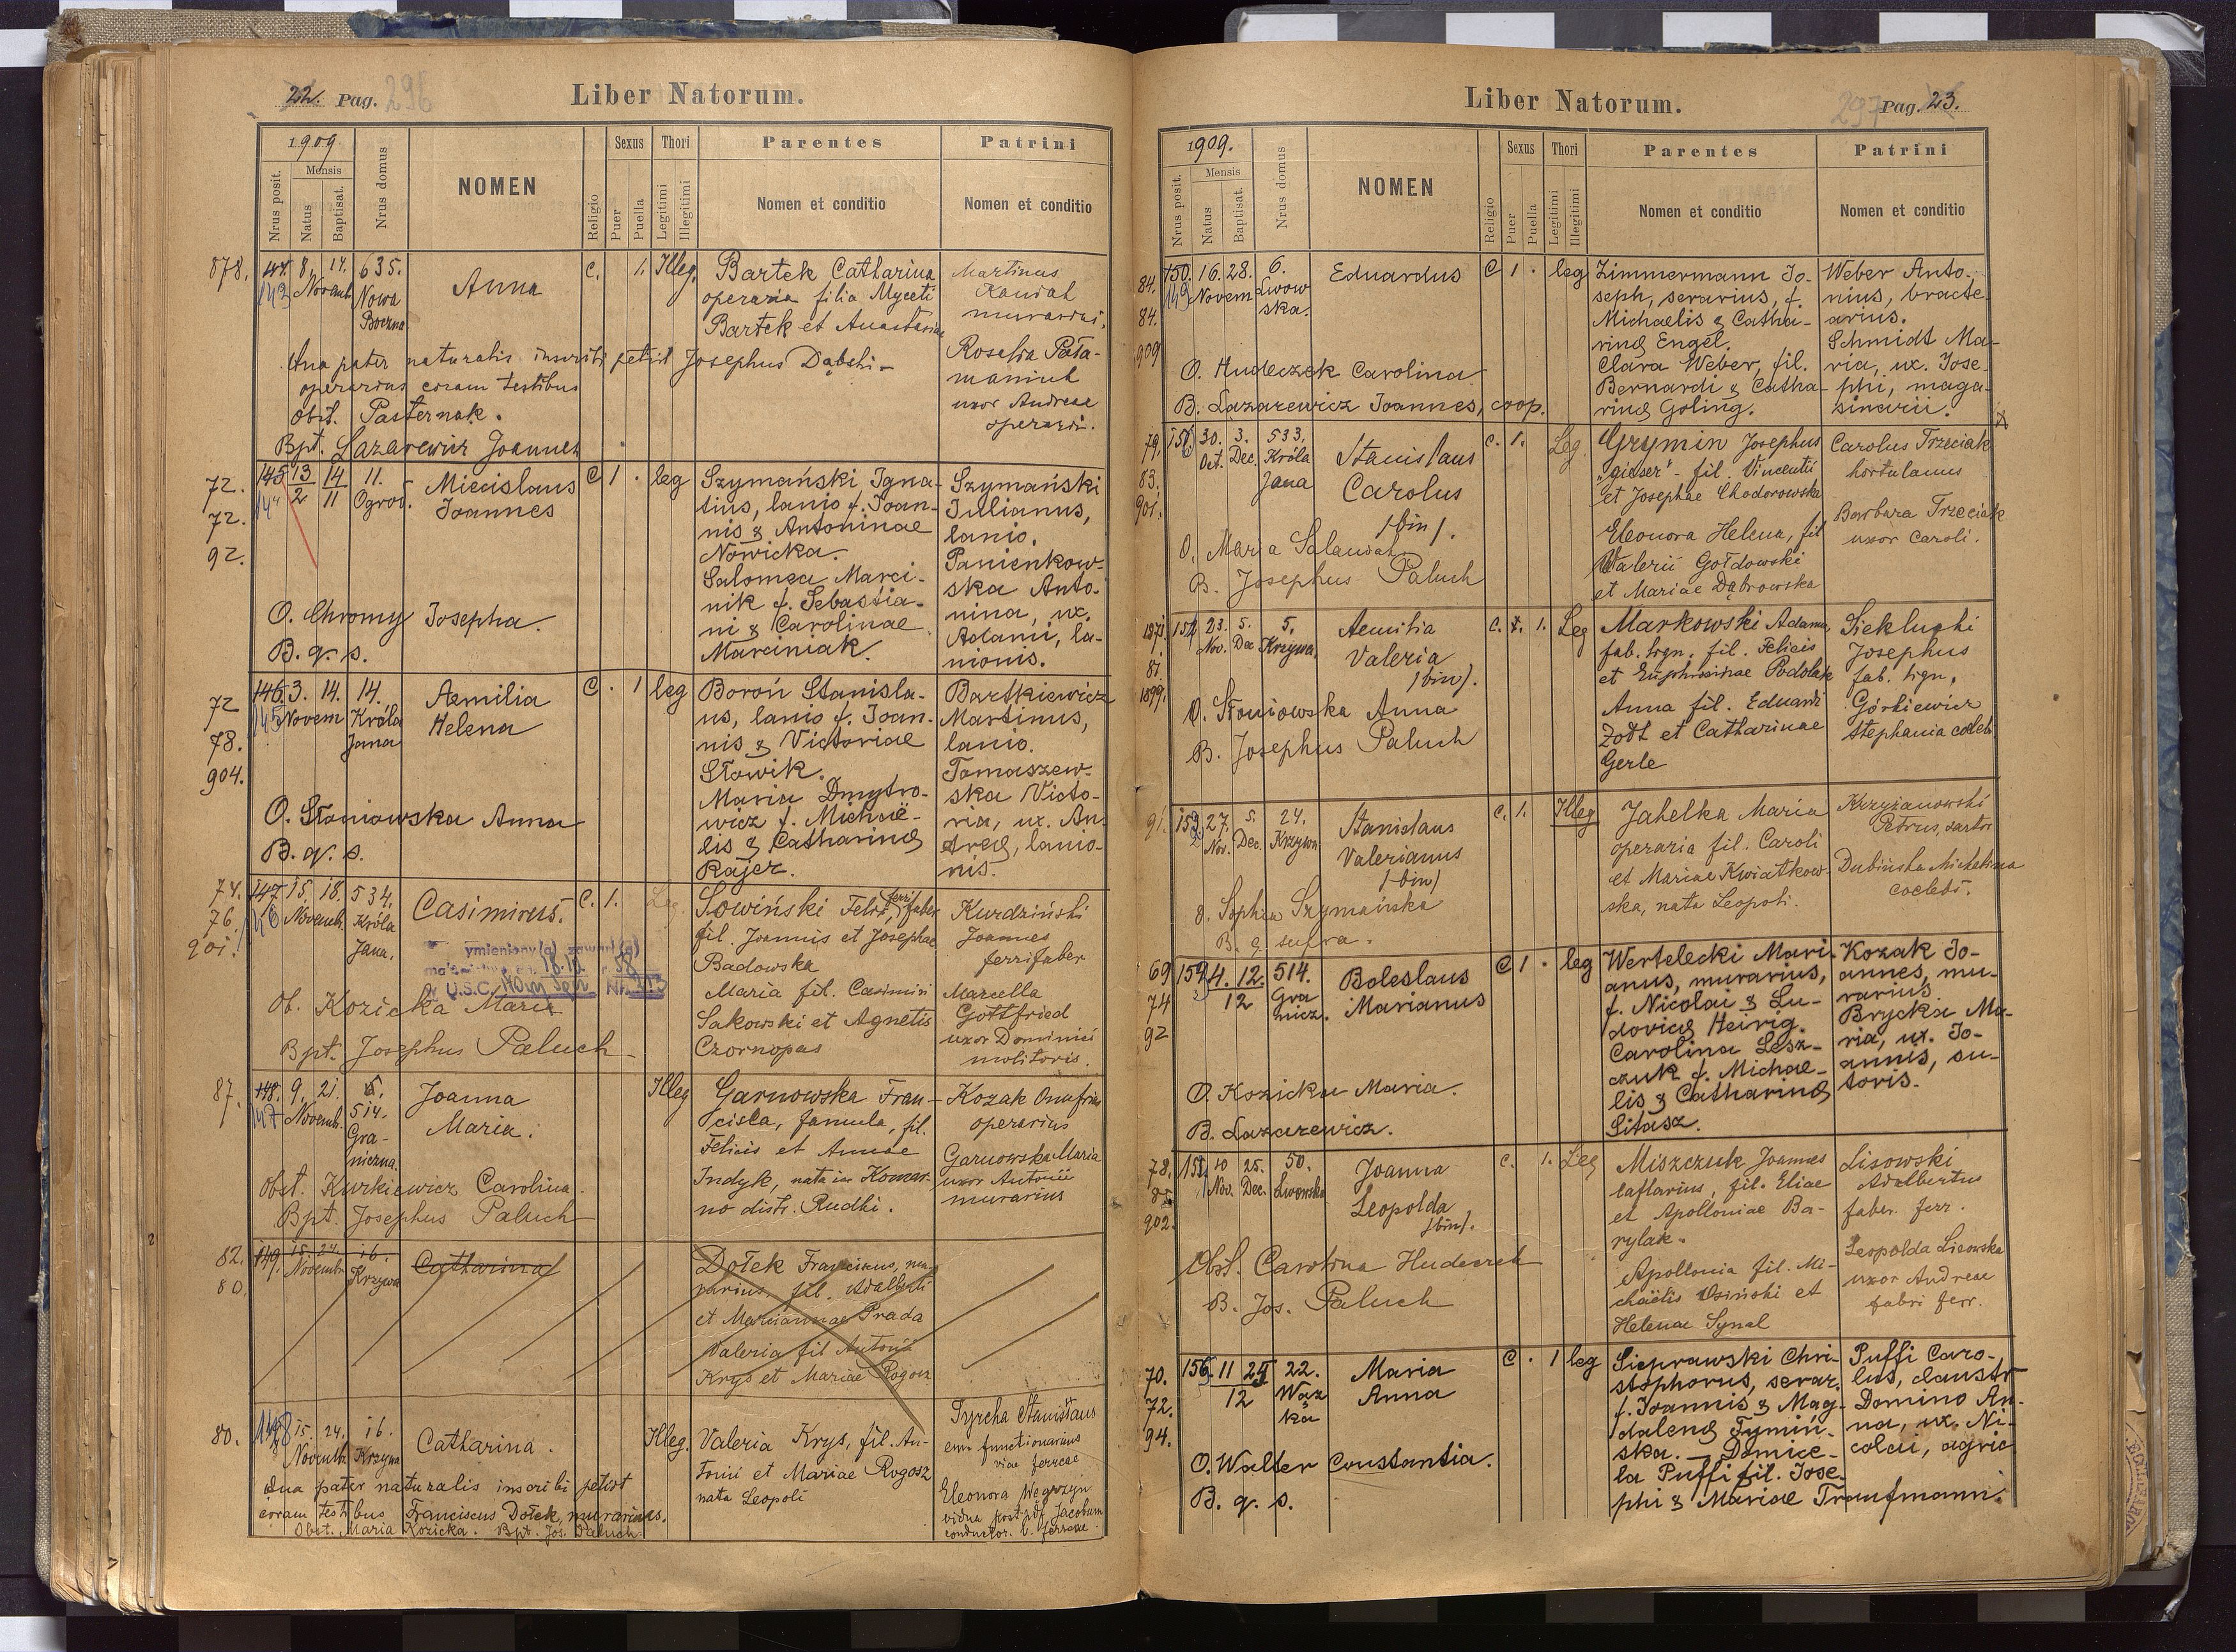 22. Pag. 296
Liber Natorum.
1909
Nrus posit.
Mensis
Natus
Baptisat.
Nrus domus
NOMEN
Religio
Sexus
Puer
Puella
Thori
Legitimi
Illegitimi
Parentes
Nomen et conditio
Patrini
Nomen et conditio
878.
144. 8. 14. 635.
143 Novemb. Nowa
Boczna
Anna
C. 1. Illeg.
Bartek Catharina
operaria filia Myceti
Bartek et Anastasiae
Martinus
murarius.
Rosalia
uxor Andreae
operarii.
Qua pater naturalis inscribi petiit Josephus Dąbski -
operarius coram testibus
Obst. Pasternak.
Bpt. Lazarewicz Joannes
72.
72.
92.
145 13 14 11.
2 11 Ogrod.
Miecislaus
Joannes
C 1 . leg
Szymański Igna-
tius, lanio f. Joan-
nis & Antoninae
Nowicka.
Salomea Marci-
nik f. Sebastia-
ni & Carolinae
Marciniak.
Szymański
Julianus,
lanio.
Panienkow-
ska Anto-
nina, ux.
Adami, la-
nionis.
O. Chromy Josepha.
B. q. s.
72
78.
904.
146 3. 14. 14.
145 Novem Króla
Jana
Aemilia
Helena
C . 1 leg
Boroń Stanisla-
us, lanio f. Joan-
nis & Victoriae
Słowik.
Maria Dmytro-
wicz f. Michaë-
lis & Catharinę
Rajez.
Bartkiewicz
Martinus,
lanio.
Tomaszew-
ska Victo-
ria, ux. An-
dreę, lanio-
nis.
O. Słoniowska Anna
B. q. s.
74.
76.
901.
147 15. 18. 534.
146 Novemb. Króla
Jana.
Casimirus.
C. 1. Leg.
Sowiński Felix, ferri faber
fil. Joannis et Josephae
Badowska
Maria fil. Casimiri
Sakowski et Agnetis
Czornopas
Kurdziński
Joannes
ferrifaber
Marcella
Gottfried
uxor Dominici
molitoris.
ymieniony(a) zawarł(a)
18.10. 58
U.S.C. Nr. 313
Ob. Kozicka Maria
Bpt. Josephus Paluch
87.
148. 9. 21. 5.
147 Novemb. 514.
Gra-
niczna.
Joanna
Maria.
Illeg
Garnowska Fran-
ciska, famula, fil.
Felicis et Annae
Indyk, nata in Komar-
no distr. Rudki.
Kozak Onufrius
operarius
Garnowska Maria
uxor Antonii
murarius
Obst. Kurkiewicz Carolina.
Bpt. Josephus Paluch
82.
80.
149. 15. 24. 16.
Novemb. Krzywa
Catharina
Dołek Franciscus, mu-
rarius, fil. Adalberti
et Mariannae Prada
Valeria fil Antonii
Krys et Mariae Rogosz
80.
148 15. 24. 16.
Novemb. Krzywa
Catharina.
Illeg.
Valeria Krys, fil. An-
tonii et Mariae Rogosz
nata Leopoli
Tyrcha Stanislaus
em. functionarius
viae ferreae
Eleonora Węgrzyn
vidua post def. Jacobum
conductor. v. ferreae
Qua pater naturalis inscribi petiit
coram testibus Franciscus Dołek, murarius.
Obst. Maria Kozicka. Bpt. Jos. Paluch
Liber Natorum.
297 Pag. 23.
1909.
Nrus posit.
Mensis
Natus
Baptisat.
Nrus domus
NOMEN
Religio
Sexus
Puer
Puella
Thori
Legitimi
Illegitimi
Parentes
Nomen et conditio
Patrini
Nomen et conditio
84.
84.
909
150. 16. 28. 6.
149 Novem Lwow
ska.
Eduardus
C 1 . leg
Zimmermann Jo-
seph, serarius, f.
Michaelis & Catha-
rinę Engel.
Clara Weber, fil.
Bernardi & Catha-
rinę Goling.
Weber Anto-
nius, bracte-
arius.
Schmidt Ma-
ria, ux. Jose-
phi, maga-
sinarii.
O. Hudeczek Carolina
B. Lazarewicz Joannes, coop.
79.
83.
901.
150 30. 3. 533.
Oct. Dec. Króla
Jana
Stanislaus
Carolus
/bin/.
C. 1. Leg.
Grymin Josephus
"gieser" - fil. Vincentii
et Josephae Chodorowska
Eleonora Helena, fil
Valerii Gołdowski
et Mariae Dąbrowska
Carolus Trzeciak
hortulanus
Barbara Trzeciak
uxor Caroli.
O. Maria
B. Josephus Paluch
1873.
81.
1899.
151 23. 5. 5.
Nov. Dec Krzywa.
Aemilia
Valeria
/bin/.
C. 1. Leg
Markowski Adam,
fab. lign. fil. Felicis
et Euphrosinae Podolak
Anna fil. Eduardi
Zodt et Catharinae
Gerle
Siekluchi
Josephus
fab. lign.
Górkiewicz
Stephania coeleb.
O. Słoniowska Anna
B. Josephus Paluch
91.
152 27. 5. 24.
Nov. Dec. Krzywa
Stanislaus
Valerianus
/bin/
C. 1. Illeg
Jahelka Maria
operaria fil. Caroli
et Mariae Kwiatkow-
ska, nata Leopoli.
Krzyżanowski
Petrus, sartor
Dubińska Michalina
coelebs.
O. Sophia Szymańska
B. q. supra.
69
74
92
153 4. 12. 514.
12 Gra
nicz.
Boleslaus
Marianus
C 1 . leg
Wertelecki Mari-
anus, murarius,
f. Nicolai & Lu-
dovicę Heirig.
Carolina Lesz-
czuk f. Michae-
lis & Catharinę
Sitasz.
Kozak Jo-
annes, mu-
rarius.
Brycka Ma-
ria, ux. Jo-
annis, su-
toris.
O. Kozicka Maria.
B. Lazarewicz.
78.
902.
10 25. 50.
Nov. Dec. Lwowska
Joanna
Leopolda
/bin/.
C. 1. Leg
Miszczuk Joannes
laftarius, fil. Eliae
et Apolloniae Ba-
rylak.
Apollonia fil. Mi-
chaëlis Osiński et
Helenae Synal
Lisowski
Adalbertus
faber. ferr.
Leopolda Lisowska
uxor Andreae
fabri ferr.
Obst. Carolina Hudeczek
B. Jos. Paluch
70.
72.
94.
156 11 25 22.
12 Wąz
ka
Maria
Anna
C . 1 leg
Sieprawski Chri-
stophorus, serar.
f. Joannis & Mag-
dalenę Tymiń-
ska. — Domice-
la Puffi fil. Jose-
phi & Mariae Traufmann.
Puffi Caro-
lus, claustr
Domino An-
na, ux. Ni-
colai, agric
O. Walter Constantia.
B. q. s.